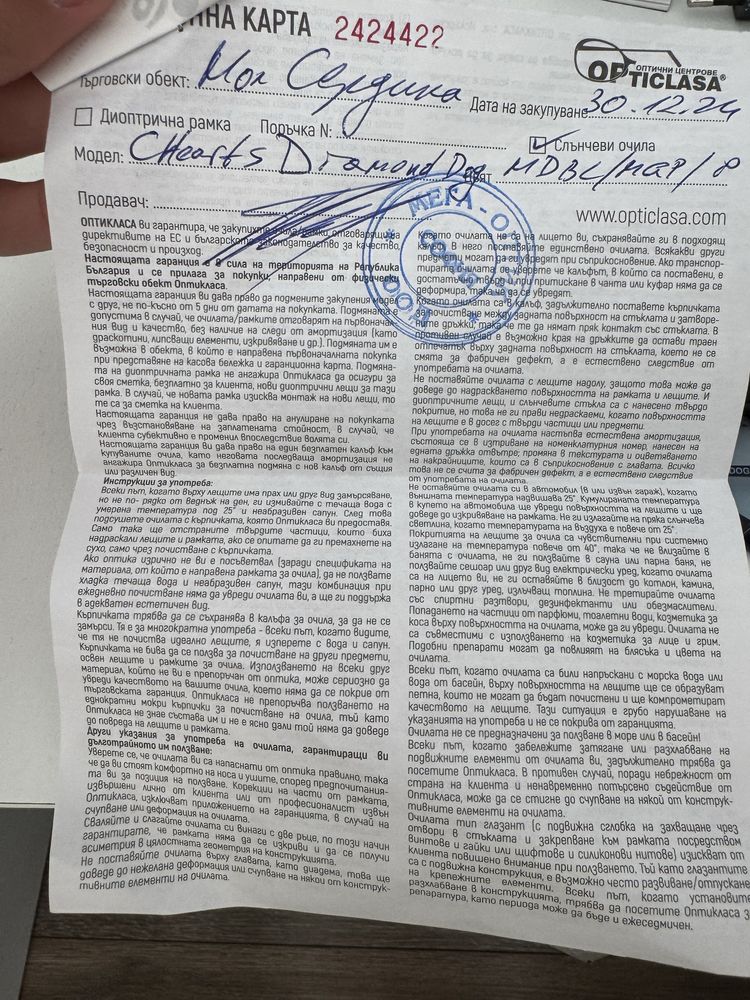 НА КАРТА 2424422
ОПТИЧНИ ЦЕНТРОВЕ
OPTICLASA®
Търговски обект: Мол Сердика
Дата на закупуване 30.12.24
Диоптрична рамка Поръчка N: Слънчеви очила
Модел: CHearts Diamond Dog MDBL/MAP/P
Продавач:
www.opticlasa.com
МЕГА - ОПТ
ОПТИКЛАСА ви гарантира, че закупихте
директивите на ЕС и българското законодателство за качество,
безопасност и произход.
Настоящата гаранция е в сила на територията на Република
България и се прилага за покупки, направени от физически
търговски обект Оптикласа.
Настоящата гаранция ви дава право да подмените закупения модел
с друг, не по-късно от 5 дни от датата на покупката. Подмяната е
допустима в случай, че очилата/рамките отговарят на първоначал-
ния вид и качество, без наличие на следи от амортизация (като
драскотини, липсващи елементи, изкривяване и др.). Подмяната им е
възможна в обекта, в който е направена първоначалната покупка
при представяне на касова бележка и гаранционна карта. Подмяна-
та на диоптричната рамка не ангажира Оптикласа да осигури за
своя сметка, безплатно за клиента, нови диоптрични лещи за тази
рамка. В случай, че новата рамка изисква монтаж на нови лещи, то
те са за сметка на клиента.
Настоящата гаранция не дава право на анулиране на покупката
чрез възстановяване на заплатената стойност, в случай, че
клиента субективно е променил впоследствие волята си.
Настоящата гаранция ви дава право на един безплатен калъф към
купуваните очила, като неговата последваща амортизация не
ангажира Оптикласа за безплатна подмяна с нов калъф от същия
или различен вид.
Инструкции за употреба:
Всеки път, когато върху лещите има прах или друг вид замърсяване,
но не по- рядко от веднъж на ден, ги измивайте с течаща вода с
умерена температура под 25° и неабразивен сапун. След това
подсушете очилата с кърпичката, която Оптикласа ви предоставя.
Само така ще отстраните твърдите частици, които биха
надраскали лещите и рамката, ако се опитате да ги премахнете на
сухо, само чрез почистване с кърпичката.
Ако оптика изрично не ви е посъветвал (заради спецификата на
материала, от който е направена рамката за очила), да не ползвате
хладка течаща вода и неабразивен сапун, тази комбинация при
ежедневно почистване няма да увреди очилата ви, а ще ги поддържа
в адекватен естетичен вид.
Кърпичката трябва да се съхранява в калъфа за очила, за да не се
замърси. Тя е за многократна употреба - всеки път, когато видите,
че тя не почиства идеално лещите, я изперете с вода и сапун.
Кърпичката не бива да се ползва за почистване на други предмети,
освен лещите и рамките за очила. Използването на всеки друг
материал, който не ви е препоръчан от оптика, може сериозно да
увреди качеството на вашите очила, което няма да се покрие от
търговската гаранция. Оптикласа не препоръчва ползването на
еднократни мокри кърпички за почистване на очила, тъй като
Оптикласа не знае състава им и не е ясно дали той няма да доведе
до повреда на лещите и рамката.
Други указания за употреба на очилата, гарантиращи ви
дълготрайното им ползване:
Уверете се, че очилата ви са напаснати от оптика правилно, така
че да ви стоят комфортно на носа и ушите, според предпочитания-
та ви за позиция на ползване. Корекции на части от рамката,
извършени лично от клиента или от професионалист извън
Оптикласа, изключват приложението на гаранцията, в случай на
счупване или деформация на очилата.
Сваляйте и слагайте очилата си винаги с две ръце, по този начин
гарантирате, че рамката няма да се изкриви и да се получи
асиметрия в цялостната геометрия на конструкцията.
Не поставяйте очилата върху главата, като диадема, това ще
доведе до нежелана деформация или счупване на някой от конструк-
тивните елементи на очилата.
Когато очилата не са на лицето ви, съхранявайте ги в подходящ
калъф. В него поставяйте единствено очилата. Всякакви други
предмети могат при съприкосновение. Ако транспор-
тирате очилата, уверете че калъфът, в който са поставени, е
притискане в чанта или куфар няма да се
деформира, така че да се увредят.
са в калъф, задължително поставете кърпичката
почистване между задната повърхност на стъклата и затворе-
ните дръжки, така че те да нямат пряк контакт със стъклата. В
противен случай е възможно края на дръжките да остави траен
отпечатък върху задната повърхност на стъклата, което не се
смята за фабричен дефект, а е естествено следствие от
употребата на очилата.
Не поставяйте очилата с лещите надолу, защото това може да
доведе до надраскването повърхността на рамката и лещите. И
диоптричните лещи, и слънчевите стъкла са с нанесено твърдо
покритие, но това не ги прави недраскаеми, когато повърхността
на лещите е в досег с твърди частици или предмети.
При употребата на очилата настъпва естествена амортизация,
състояща се в изтриване на номенклатурния номер, нанесен на
едната дръжка отвътре; промяна в текстурата и оцветяването
на накрайниците, които са в съприкосновение с главата. Всичко
това не се счита за фабричен дефект, а е естествено следствие
от употребата на очилата.
Не оставяйте очилата си в автомобил (в или извън гараж), когато
външната температура надвишава 25°. Кумулираната температура
в купето на автомобила ще увреди повърхността на лещите и ще
доведе до изкривяване на рамката. Не ги излагайте на пряка слънчева
светлина, когато температурата на въздуха е повече от 25°.
Покритията на лещите за очила са чувствителни при системно
излагане на температура повече от 40°, така че не влизайте в
банята с очилата, не ги ползвайте в сауна или парна баня, не
ползвайте сешоар или друг вид електрически уред, когато очилата
са на лицето ви, не ги оставяйте в близост до котлон, камина,
парно или друг уред, излъчващ топлина. Не третирайте очилата
със спиртни разтвори, дезинфектанти или обезмаслители.
Попадането на частици от парфюми, тоалетни води, козметика за
коса върху повърхността на очилата, може да ги увреди. Очилата не
са съвместими с използването на козметика за лице и грим.
Подобни препарати могат да повлияят на блясъка и цвета на
очилата.
Всеки път, когато очилата са били напръскани с морска вода или
вода от басейн, върху повърхността на лещите ще се образуват
петна, които не могат да бъдат почистени и ще компрометират
качеството на лещите. Тази ситуация е грубо нарушаване на
указанията на употреба и не се покрива от гаранцията.
Очилата не са предназначени за ползване в море или в басейн!
Всеки път, когато забележите затягане или разхлабване на
подвижните елементи от очилата ви, задължително трябва да
посетите Оптикласа. В противен случай, поради небрежност от
страна на клиента и ненавременно потърсено съдействие от
Оптикласа, може да се стигне до счупване на някой от конструк-
тивните елементи на очилата.
Очилата тип глазант (с подвижна сглобка на захващане чрез
отвори в стъклата и закрепване към рамката посредством
винтове и гайки или щифтове и силиконови нитове) изискват от
клиента повишено внимание при ползването. Тъй като глазантите
са с подвижна конструкция, е възможно често развиване/отпускане
на крепежните елементи. Всеки път, когато установите
разхлабване в конструкцията, трябва да посетите Оптикласа з
репаратура, като периода може да бъде и ежеседмичен.